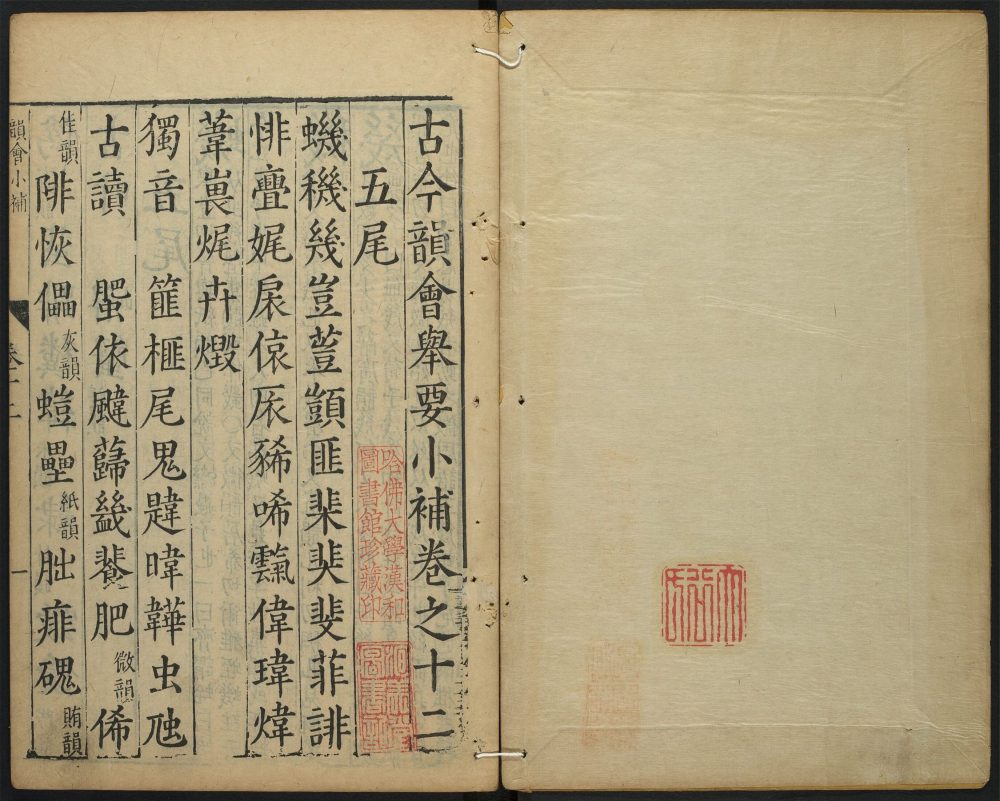 古今韻會舉要小補卷之十二
五尾
哈佛大學漢和
圖書館珍藏印
蟣穖幾豈荳顗匪棐奜斐菲誹
悱亹娓扆偯㕈豨唏霼偉瑋煒
葦嵔烶卉燬
獨音 篚榧尾鬼韙暐韡虫虺
古讀 蜰依颹蘬蟣餥肥 微韻 俙
佳韻 陫恢儡 灰韻 螘壘 紙韻 朏痱磈 賄韻
韻會小補 卷十二 一